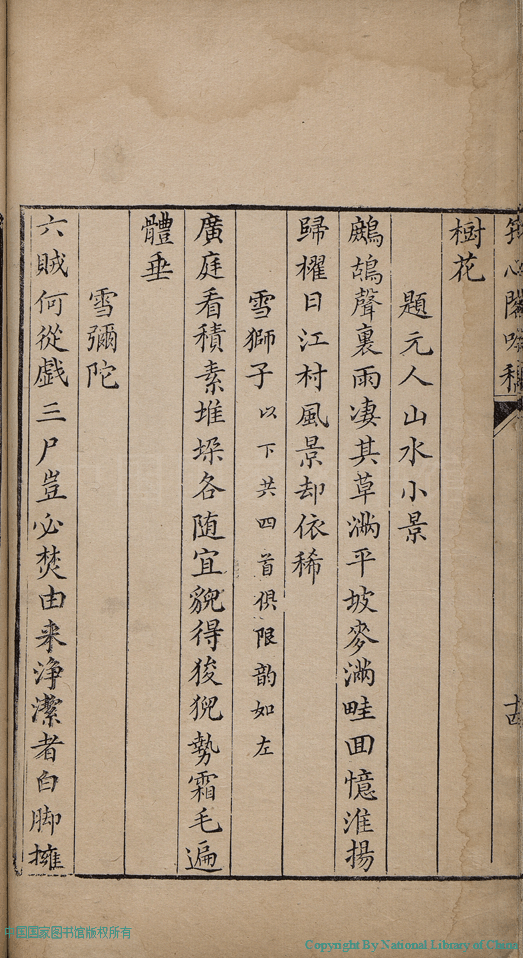 樹花
題元人山水小景
鷓鴣聲裏雨凄其草滿平坡麥滿畦回憶淮揚
歸櫂日江村風景却依稀
雪獅子以下共四首俱限韵如左
廣庭看積素堆垜各随宜貌得狻猊勢霜毛遍
體垂
雪彌陀
六賊何從戲三尸豈必焚由来浄潔者白脚擁
中国国家图书馆版权所有
Copyright By National Library of China